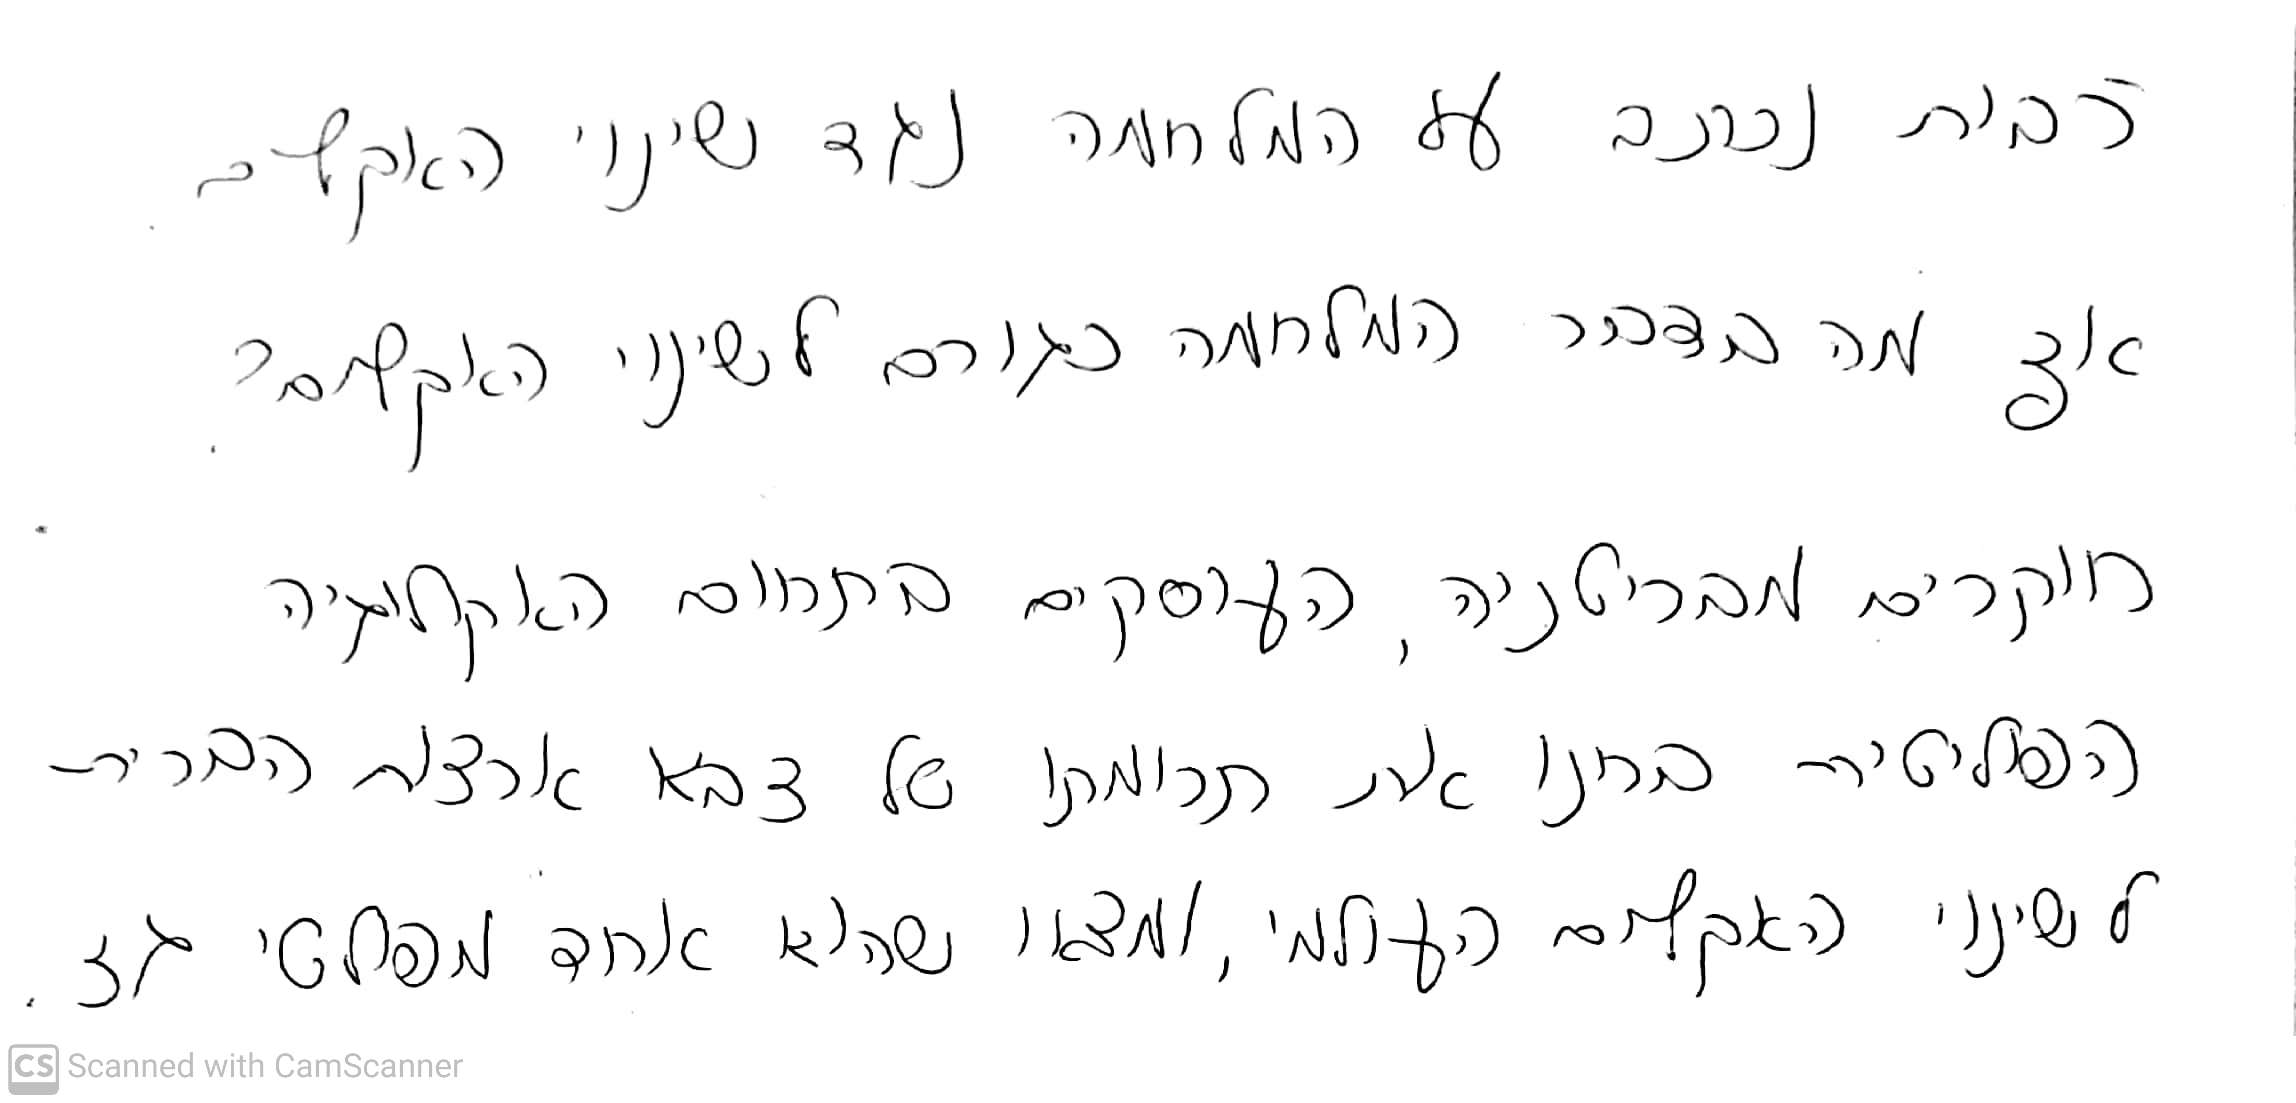 רבות נכתב על המלחמה נגד שינוי האקלים
אך מה בדבר המלחמה כגורם לשינוי האקלים?
חוקרים מבריטניה, העוסקים בתחום האקולוגיה
הפוליטית בחנו את תרומתו של צבא ארצות הברית
לשינוי האקלים העולמי, ומצאו שהוא אחד מפולטי גז
CS Scanned with CamScanner